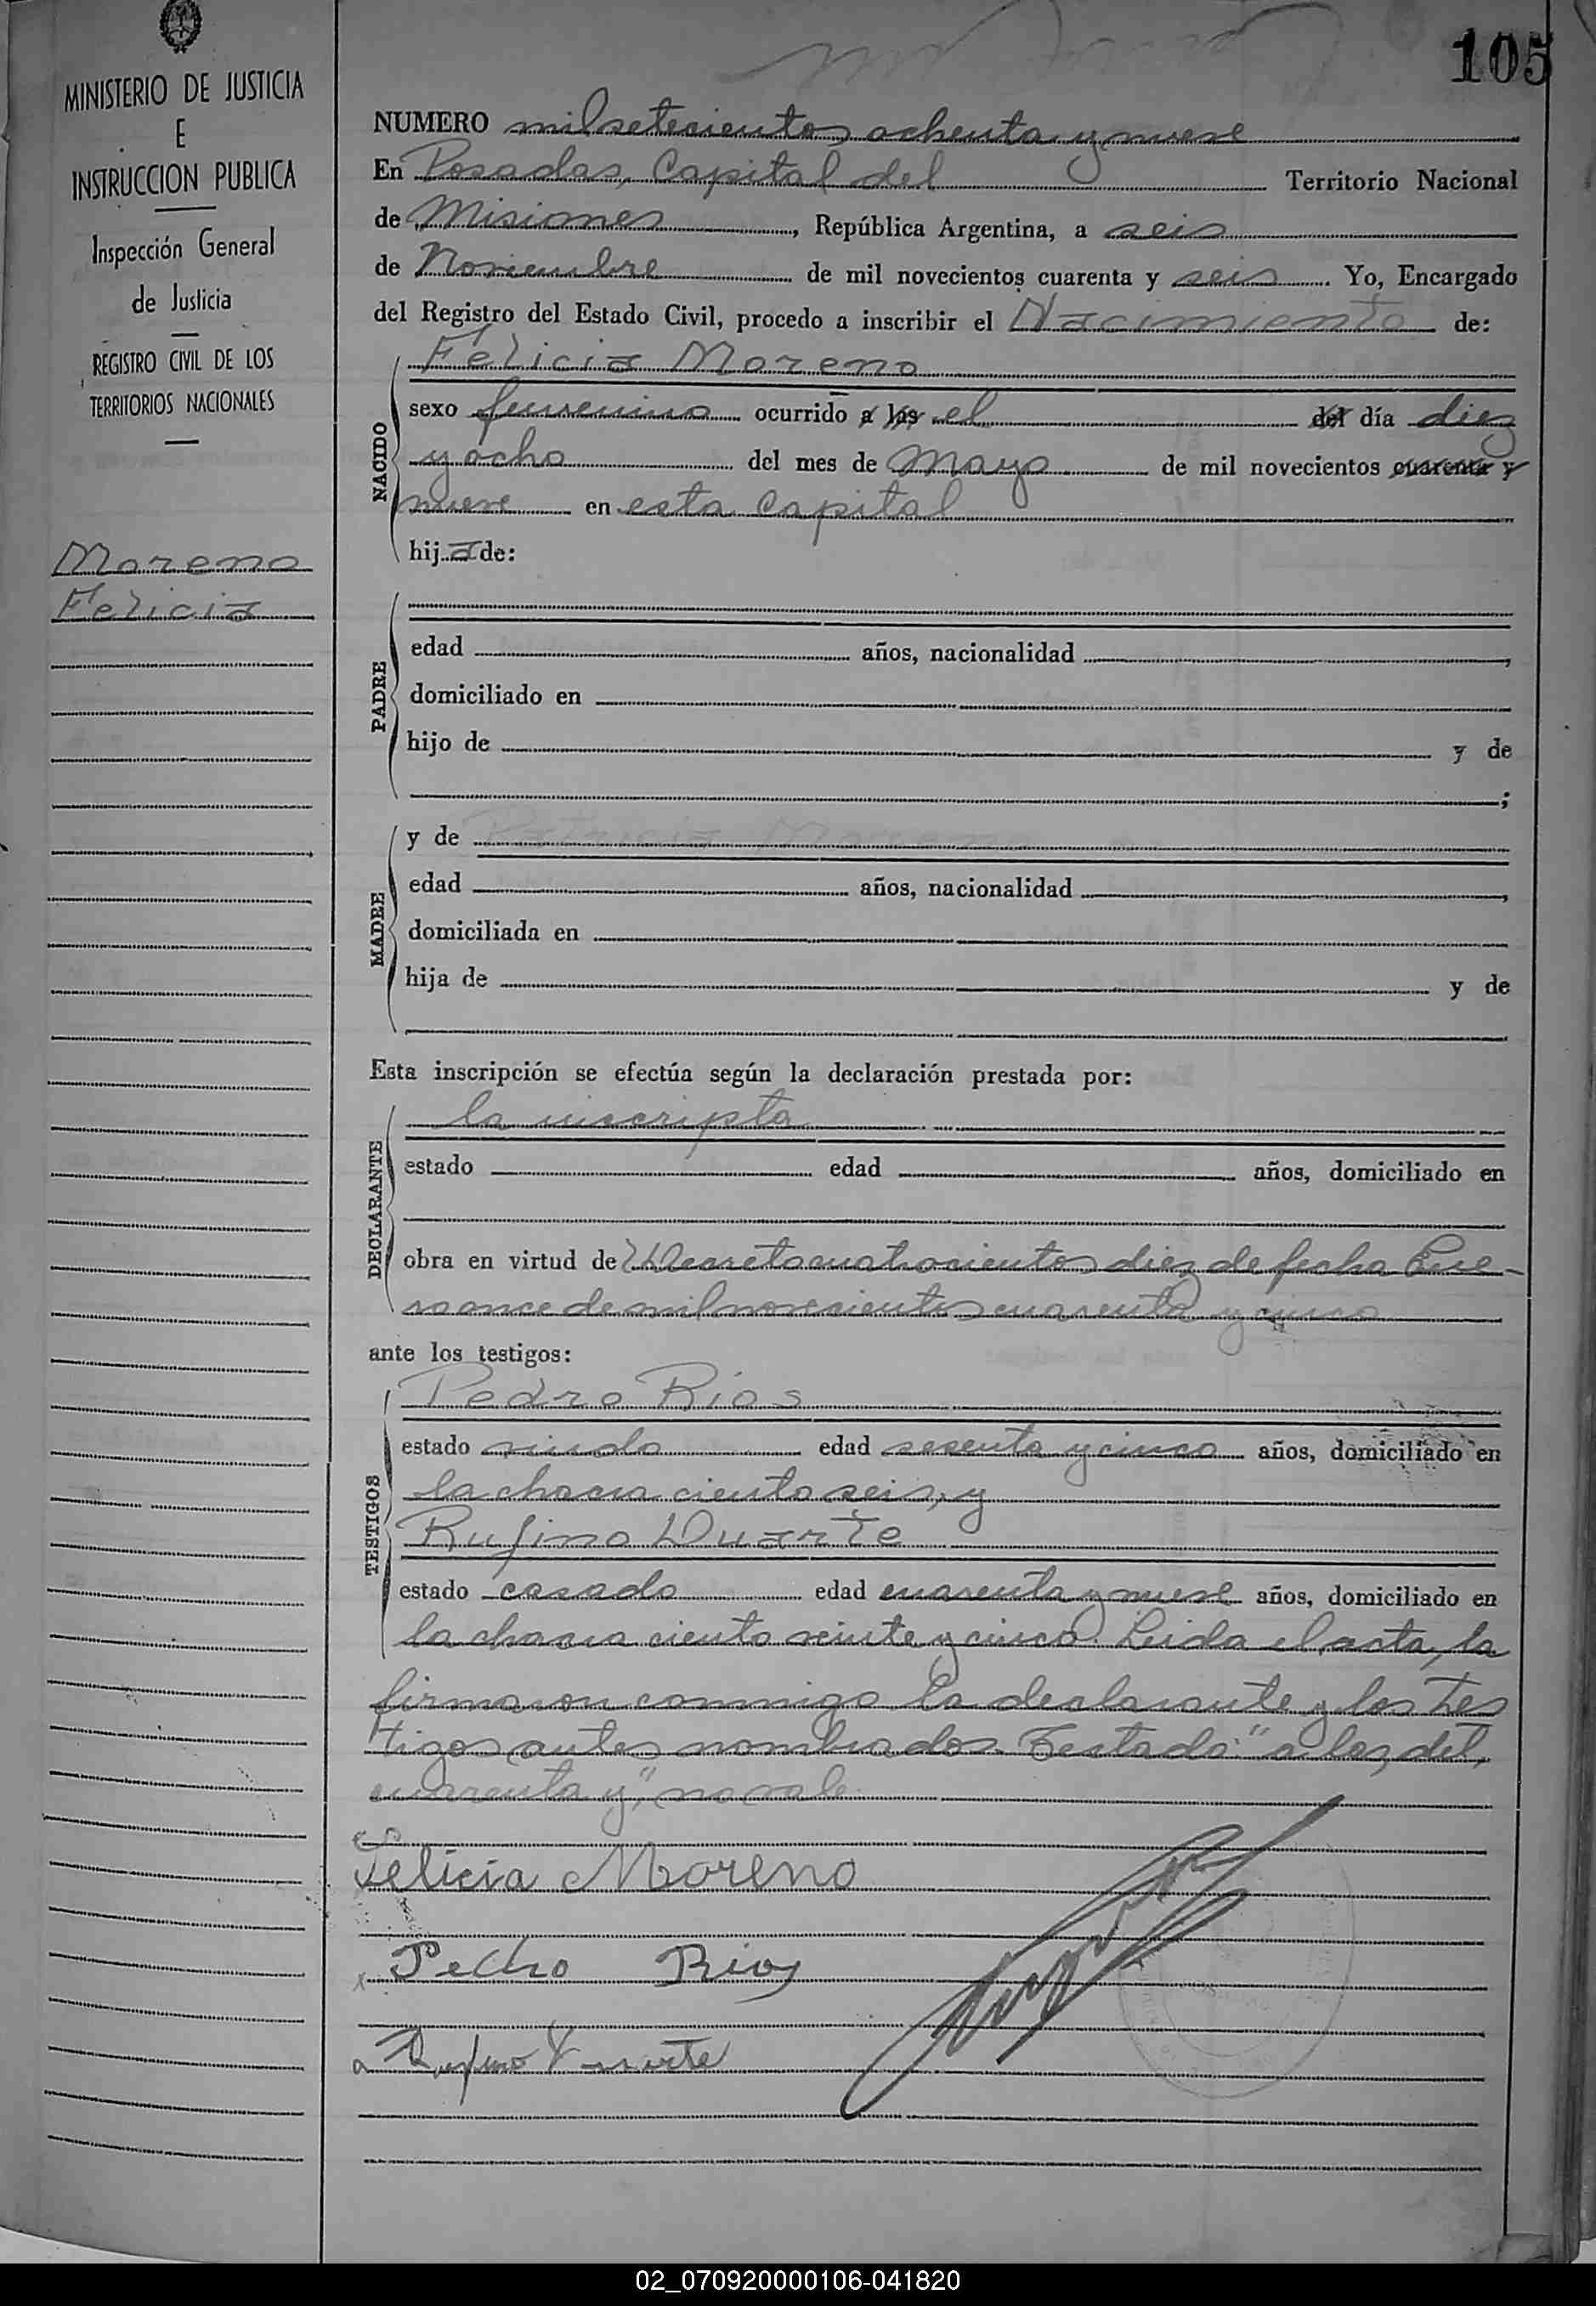 105
MINISTERIO DE JUSTICIA
E
INSTRUCCION PUBLICA
Inspección General
de Justicia
REGISTRO CIVIL DE LOS
TERRITORIOS NACIONALES
Moreno
Felicia
NUMERO mil setecientos ochenta y nueve
En Posadas, Capital del Territorio Nacional
de Misiones, República Argentina, a seis
de Noviembre de mil novecientos cuarenta y seis. Yo, Encargado
del Registro del Estado Civil, procedo a inscribir el Nacimiento de:
Felicia Moreno
NACIDO
sexo femenino ocurrido a las el del día diez
y ocho del mes de Mayo de mil novecientos cuarenta y
nueve en esta Capital
hija de:
PADRE
edad años, nacionalidad ,
domiciliado en
hijo de y de
;
MADRE
y de Patricia Moreno
edad años, nacionalidad ,
domiciliada en
hija de y de
Esta inscripción se efectúa según la declaración prestada por:
DECLARANTE
la inscripta
estado edad años, domiciliado en
obra en virtud de Decreto cuatrocientos diez de fecha Ene-
ro once de mil novecientos cuarenta y cinco
ante los testigos:
TESTIGOS
Pedro Rios
estado viudo edad sesenta y cinco años, domiciliado en
la chacra ciento seis, y
Rufino Duarte
estado casado edad cuarenta y nueve años, domiciliado en
la chacra ciento veinte y cinco. Leida el acta, la
firmaron conmigo la declarante y los tes
tigos antes nombrados. Testado: "a las, del,
cuarenta y", no vale.
Felicia Moreno
Pedro Rios
Rufino Duarte
02_070920000106-041820